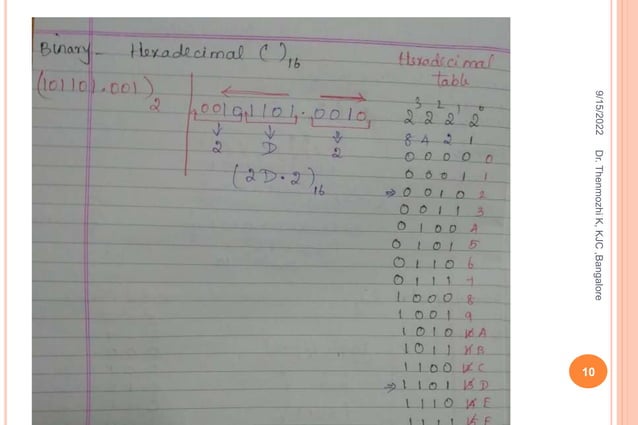 Binary - Hexadecimal ( )16
(101101.001)2
0010 1101 . 0010
2 D 2
(2D.2)16
Hexadecimal
table
2^3 2^2 2^1 2^0
8 4 2 1
0 0 0 0 0
0 0 0 1 1
⇒ 0 0 1 0 2
0 0 1 1 3
0 1 0 0 4
0 1 0 1 5
0 1 1 0 6
0 1 1 1 7
1 0 0 0 8
1 0 0 1 9
1 0 1 0 10 A
1 0 1 1 11 B
1 1 0 0 12 C
⇒ 1 1 0 1 13 D
1 1 1 0 14 E
1 1 1 1 15 F
9/15/2022 Dr. Thenmozhi K, KJC ,Bangalore
10